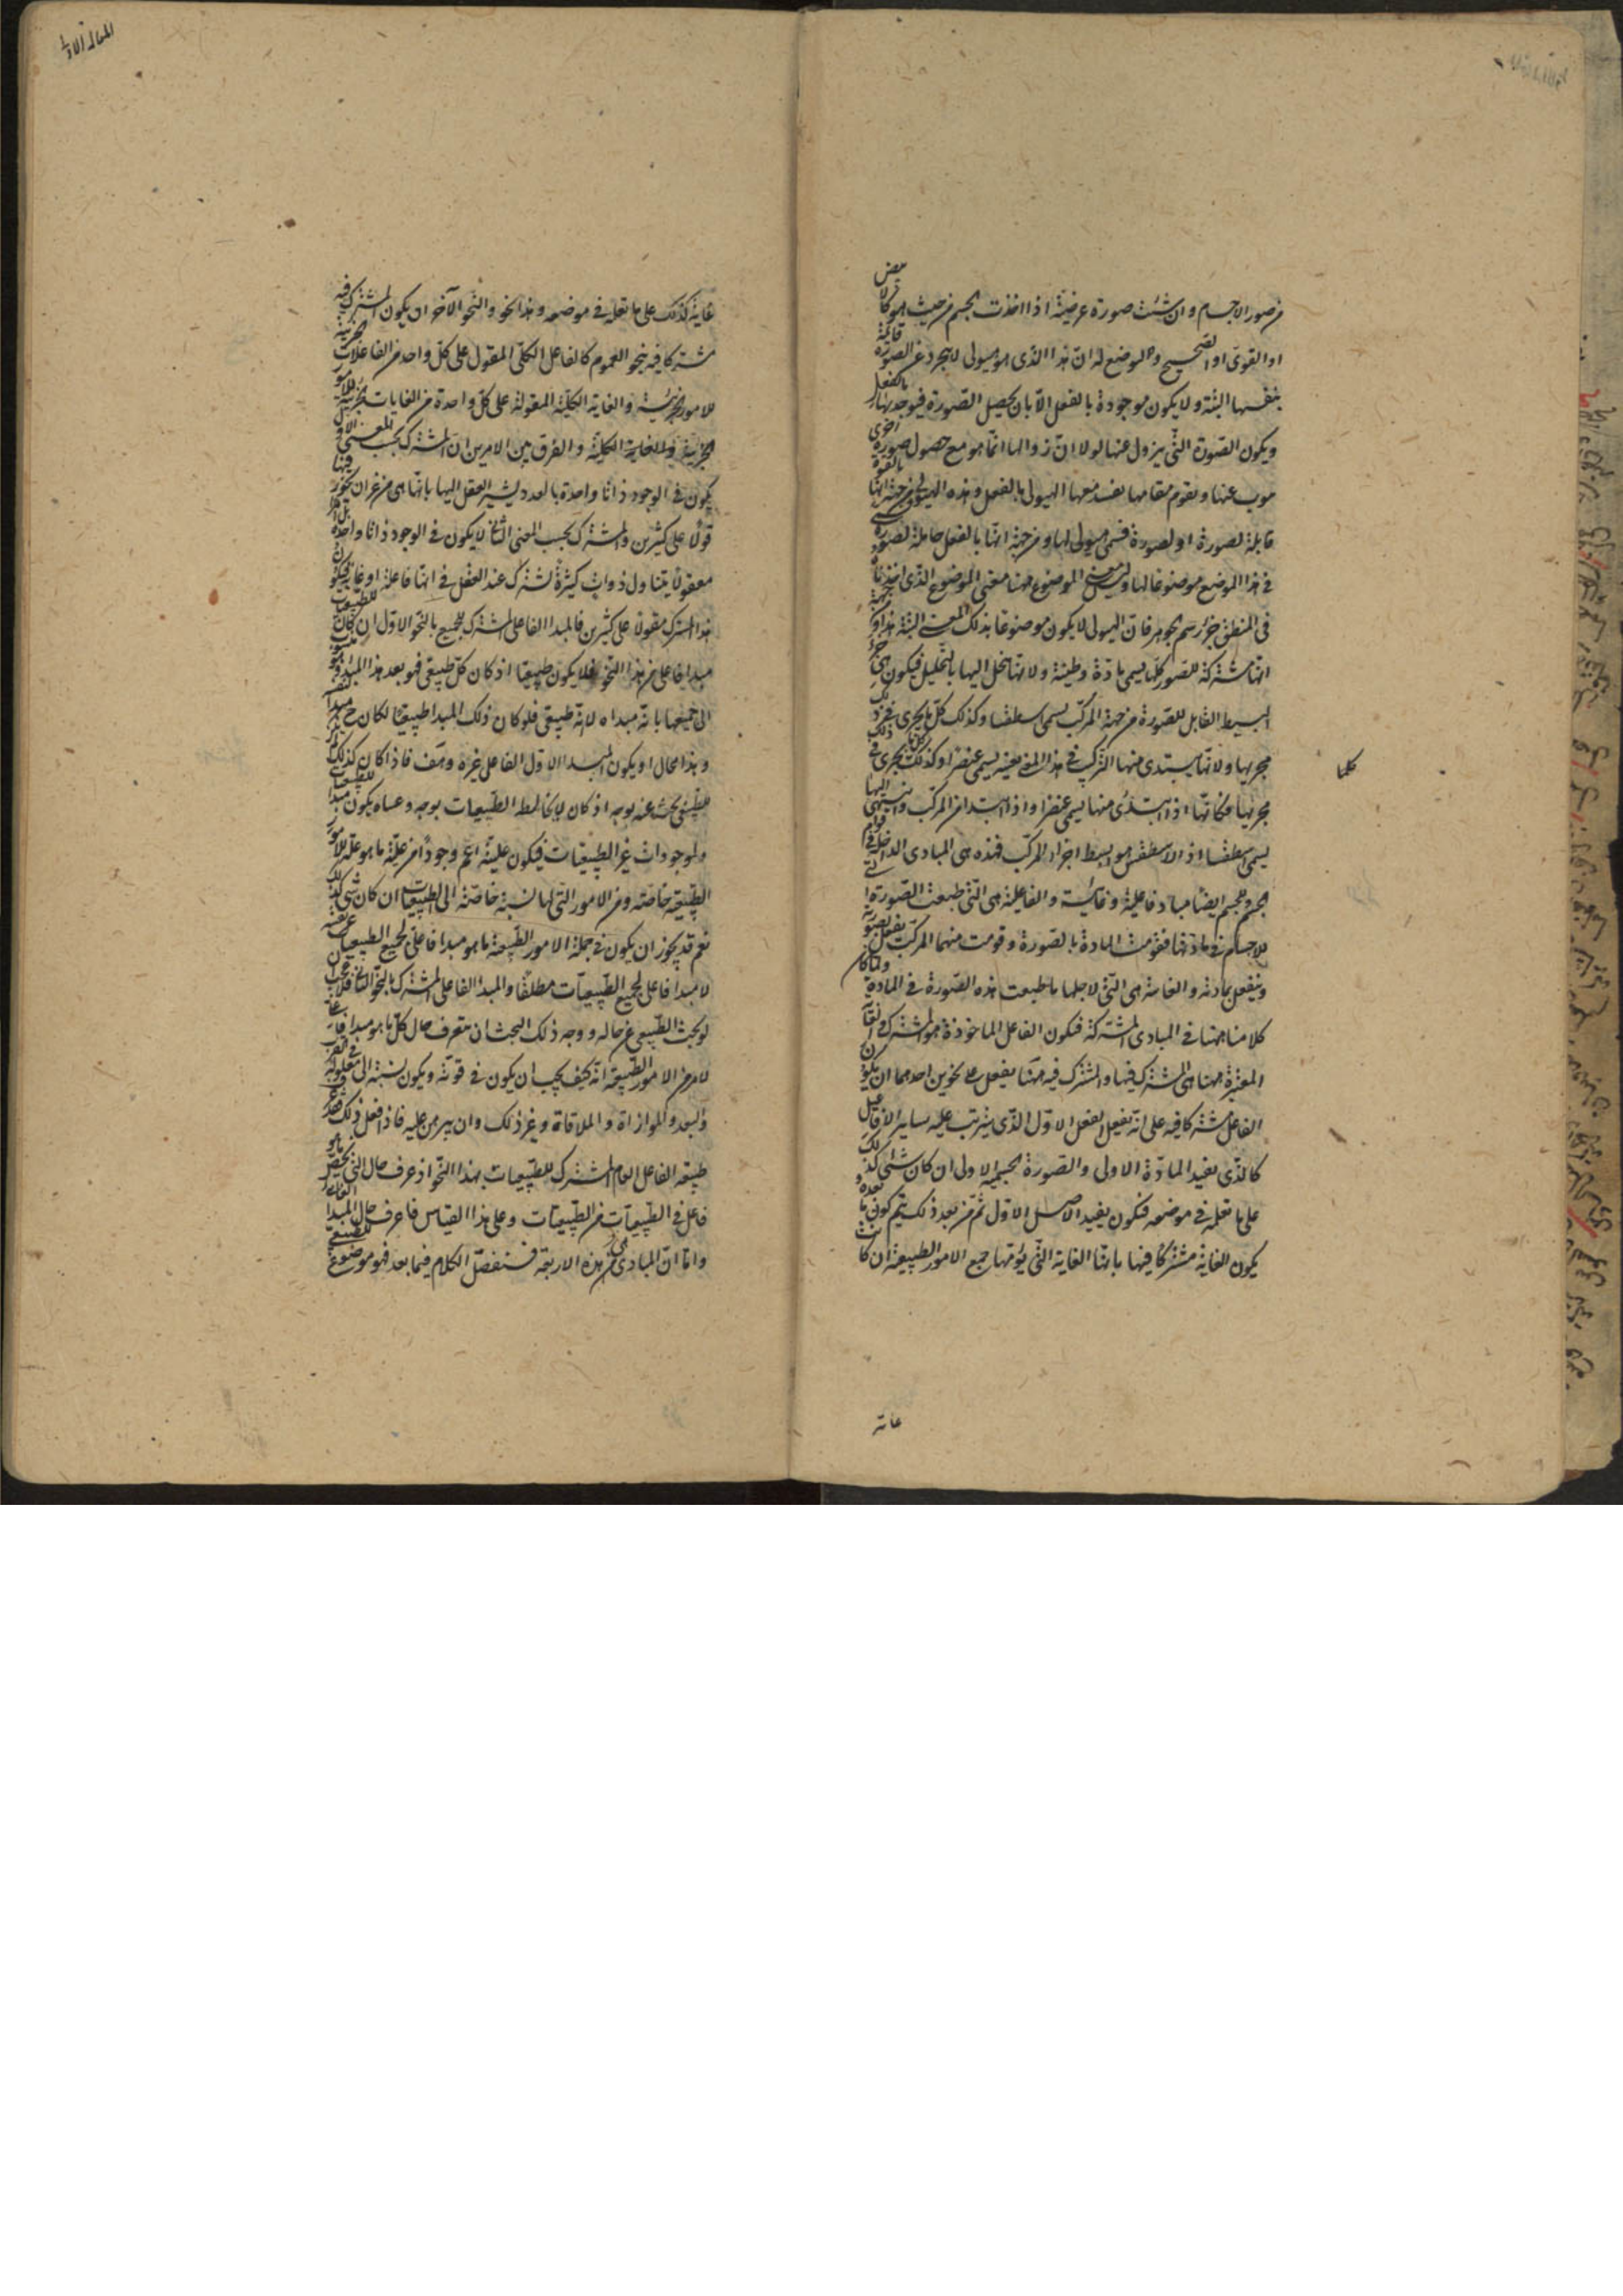 من صور الاجسام وان شئت صورة عرضية اذا اخذت الجسم من حيث هو كالابيض
او القوى او الصحيح والموضع له ان هذا الذى هو هيولى لا يتجرد عن الصورة قائمة
بنفسها البتة ولا يكون موجودة بالفعل الا بان يحصل الصورة فيوجد بها بالفعل
ويكون الصورة التى يزول عنها لولا ان زوالها انما هو مع حصول صورة اخرى
ينوب عنها ويقوم مقامها يفسد معها الهيولى بالفعل وهذه الهيولى من جهة انها بالقوة
قابلة لصورة او لصور فتسمى هيولى لها ومن جهة انها بالفعل حاملة لصورة
فى هذا الموضع موضوعا لها وليس معنى الموضوع ههنا معنى الموضوع الذى اخذناه
فى المنطق جزء رسم الجوهر فان الهيولى لا يكون موضوعا بذلك المعنى البتة هذا ومن جهة
انها مشتركة للصور كلها يسمى مادة وطينة ولانها تنحل اليها بالتحليل فيكون هى الجزء
البسيط القابل للصورة من جهة المركب يسمى اسطقسا وكذلك كل ما يجرى فى ذلك
مجريها ولانها يبتدى منها التركيب فى هذا المعنى بعينه يسمى عنصرا وكذلك كل ما يجرى فى ذلك
مجريها وكانها اذا ابتدئ منها يسمى عنصرا واذا ابتدا من المركب وانتهى اليها
يسمى اسطقسا اذ الاسطقس هو ابسط اجزاء المركب فهذه هى المبادى الداخلة فى قوام
الجسم وللجسم ايضا مباد فاعلية وغائية والفاعلية هى التى طبعت الصورة التى
للاجسام فى مادتها فقومت المادة بالصورة وقومت منهما المركب يفعل بصورته
وينفعل بمادته والغائية هى التى لاجلها ما طبعت هذه الصورة فى المادة ولما كان
كلامنا ههنا فى المبادى المشتركة فيكون الفاعل الماخوذة هو المشترك والغاية
المعتبرة ههنا هى المشترك فيها والمشترك فيه ههنا يفعل على نحوين احدهما ان يكون
الفاعل مشتركا فيه على انه يفعل الفعل الاول الذى يترتب عليه ساير الافاعيل
كالذى يفيد المادة الاولى والصورة الجسمية الاولى ان كان شئ كذلك
على ما تعلمه فى موضعه فيكون يفيد الاصل الاول ثم من بعد ذلك يتم كون ما بعده و
يكون الغاية مشتركا فيها بانها الغاية التى يؤمها جميع الامور الطبيعية ان كانت
كلما
غاية
المقالة الاولى
غاية كذلك على ما تعلمه فى موضعه وهذا نحو والنحو الآخر ان يكون المشترك فيه
مشتركا فيه بنحو العموم كالفاعل الكلى المقول على كل واحد من الفاعلات الجزئية
للامور الجزئية والغاية الكلية المقولة على كل واحدة من الغايات الجزئية للامور
الجزئية والفرق بين الامرين ان المشترك بحسب المعنى الاول
يكون فى الوجود ذاتا واحدة بالعدد يشير العقل اليها بانها هى من غير ان يجوز فيها
قولا على كثيرين والمشترك بحسب المعنى الثانى لا يكون فى الوجود ذاتا واحدة بل امرا
معقولا يتناول ذوات كثيرة تشترك عند العقل فى انها فاعلة او غاية فيكون
هذا المشترك مقولا على كثيرين فالمبدا الفاعلى المشترك للجميع بالنحو الاول ان كان للطبيعيات
مبدا فاعلى من هذا النحو فلا يكون طبيعيا اذ كان كل طبيعى فهو بعد هذا المبدا وهو منسوب
الى جميعها بانه مبداه لانه طبيعى فلو كان ذلك المبدا طبيعيا لكان ح مبدا لنفسه
وهذا محال او يكون المبدا الاول الفاعلى غيره وهف فاذا كان كذلك لم
للطبيعى بحث عنه بوجه اذ كان لا يخالط الطبيعيات بوجه وعساه يكون مبدا للطبيعيات
ولموجودات غير الطبيعيات فيكون عليته اعم وجودا من علية ما هو علة للامور
الطبيعية خاصة ومن الامور التى لها نسبة خاصة الى الطبيعيات ان كان شئ كذلك
نعم قد يجوز ان يكون فى جملة الامور الطبيعية ما هو مبدا فاعلى لجميع الطبيعيات غير نفسه
لا مبدا فاعلى لجميع الطبيعيات مطلقا والمبدا الفاعلى المشترك بالنحو الثانى فلا عجب
لو بحث الطبيعى عن حاله ووجه ذلك البحث ان يتعرف حال كل ما هو مبدا فاعلى
لامر من الامور الطبيعية انه كيف يجب ان يكون فى قوته ويكون نسبته الى معلوله فى القرب
والبعد والموازاة والملاقاة وغير ذلك وان يبرهن عليه فاذا فعل ذلك فقد عرف
طبيعة الفاعل العام المشترك للطبيعيات بهذا النحو اذ عرف حال التى يختص ما هو
فاعل فى الطبيعيات من الطبيعيات وعلى هذا القياس فاعرف حال المبدا الغائى
واما ان المبادى هى هذه الاربعة فسنفصل الكلام فيما بعد فهو موضوع للطبيعى